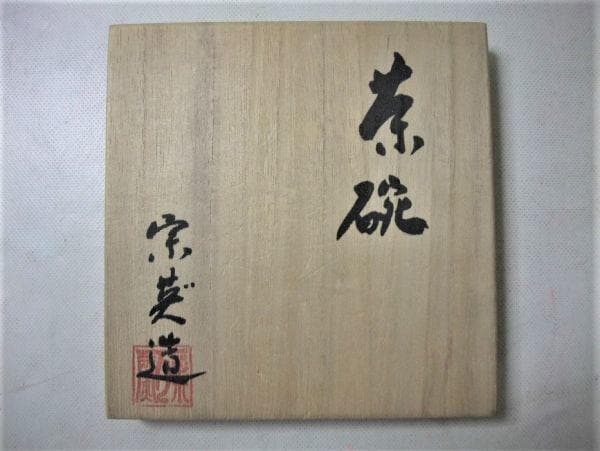 茶碗
宗英造